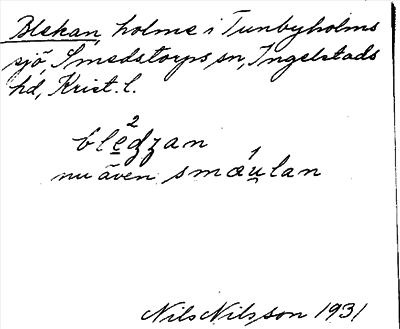 Blekan, holme i Tunbyholms
sjö, Smedstorps sn, Ingelstads
hd, Krist. l.
2
blẹdʒan
1
nu även smáu̯lan
Nils Nilsson 1931